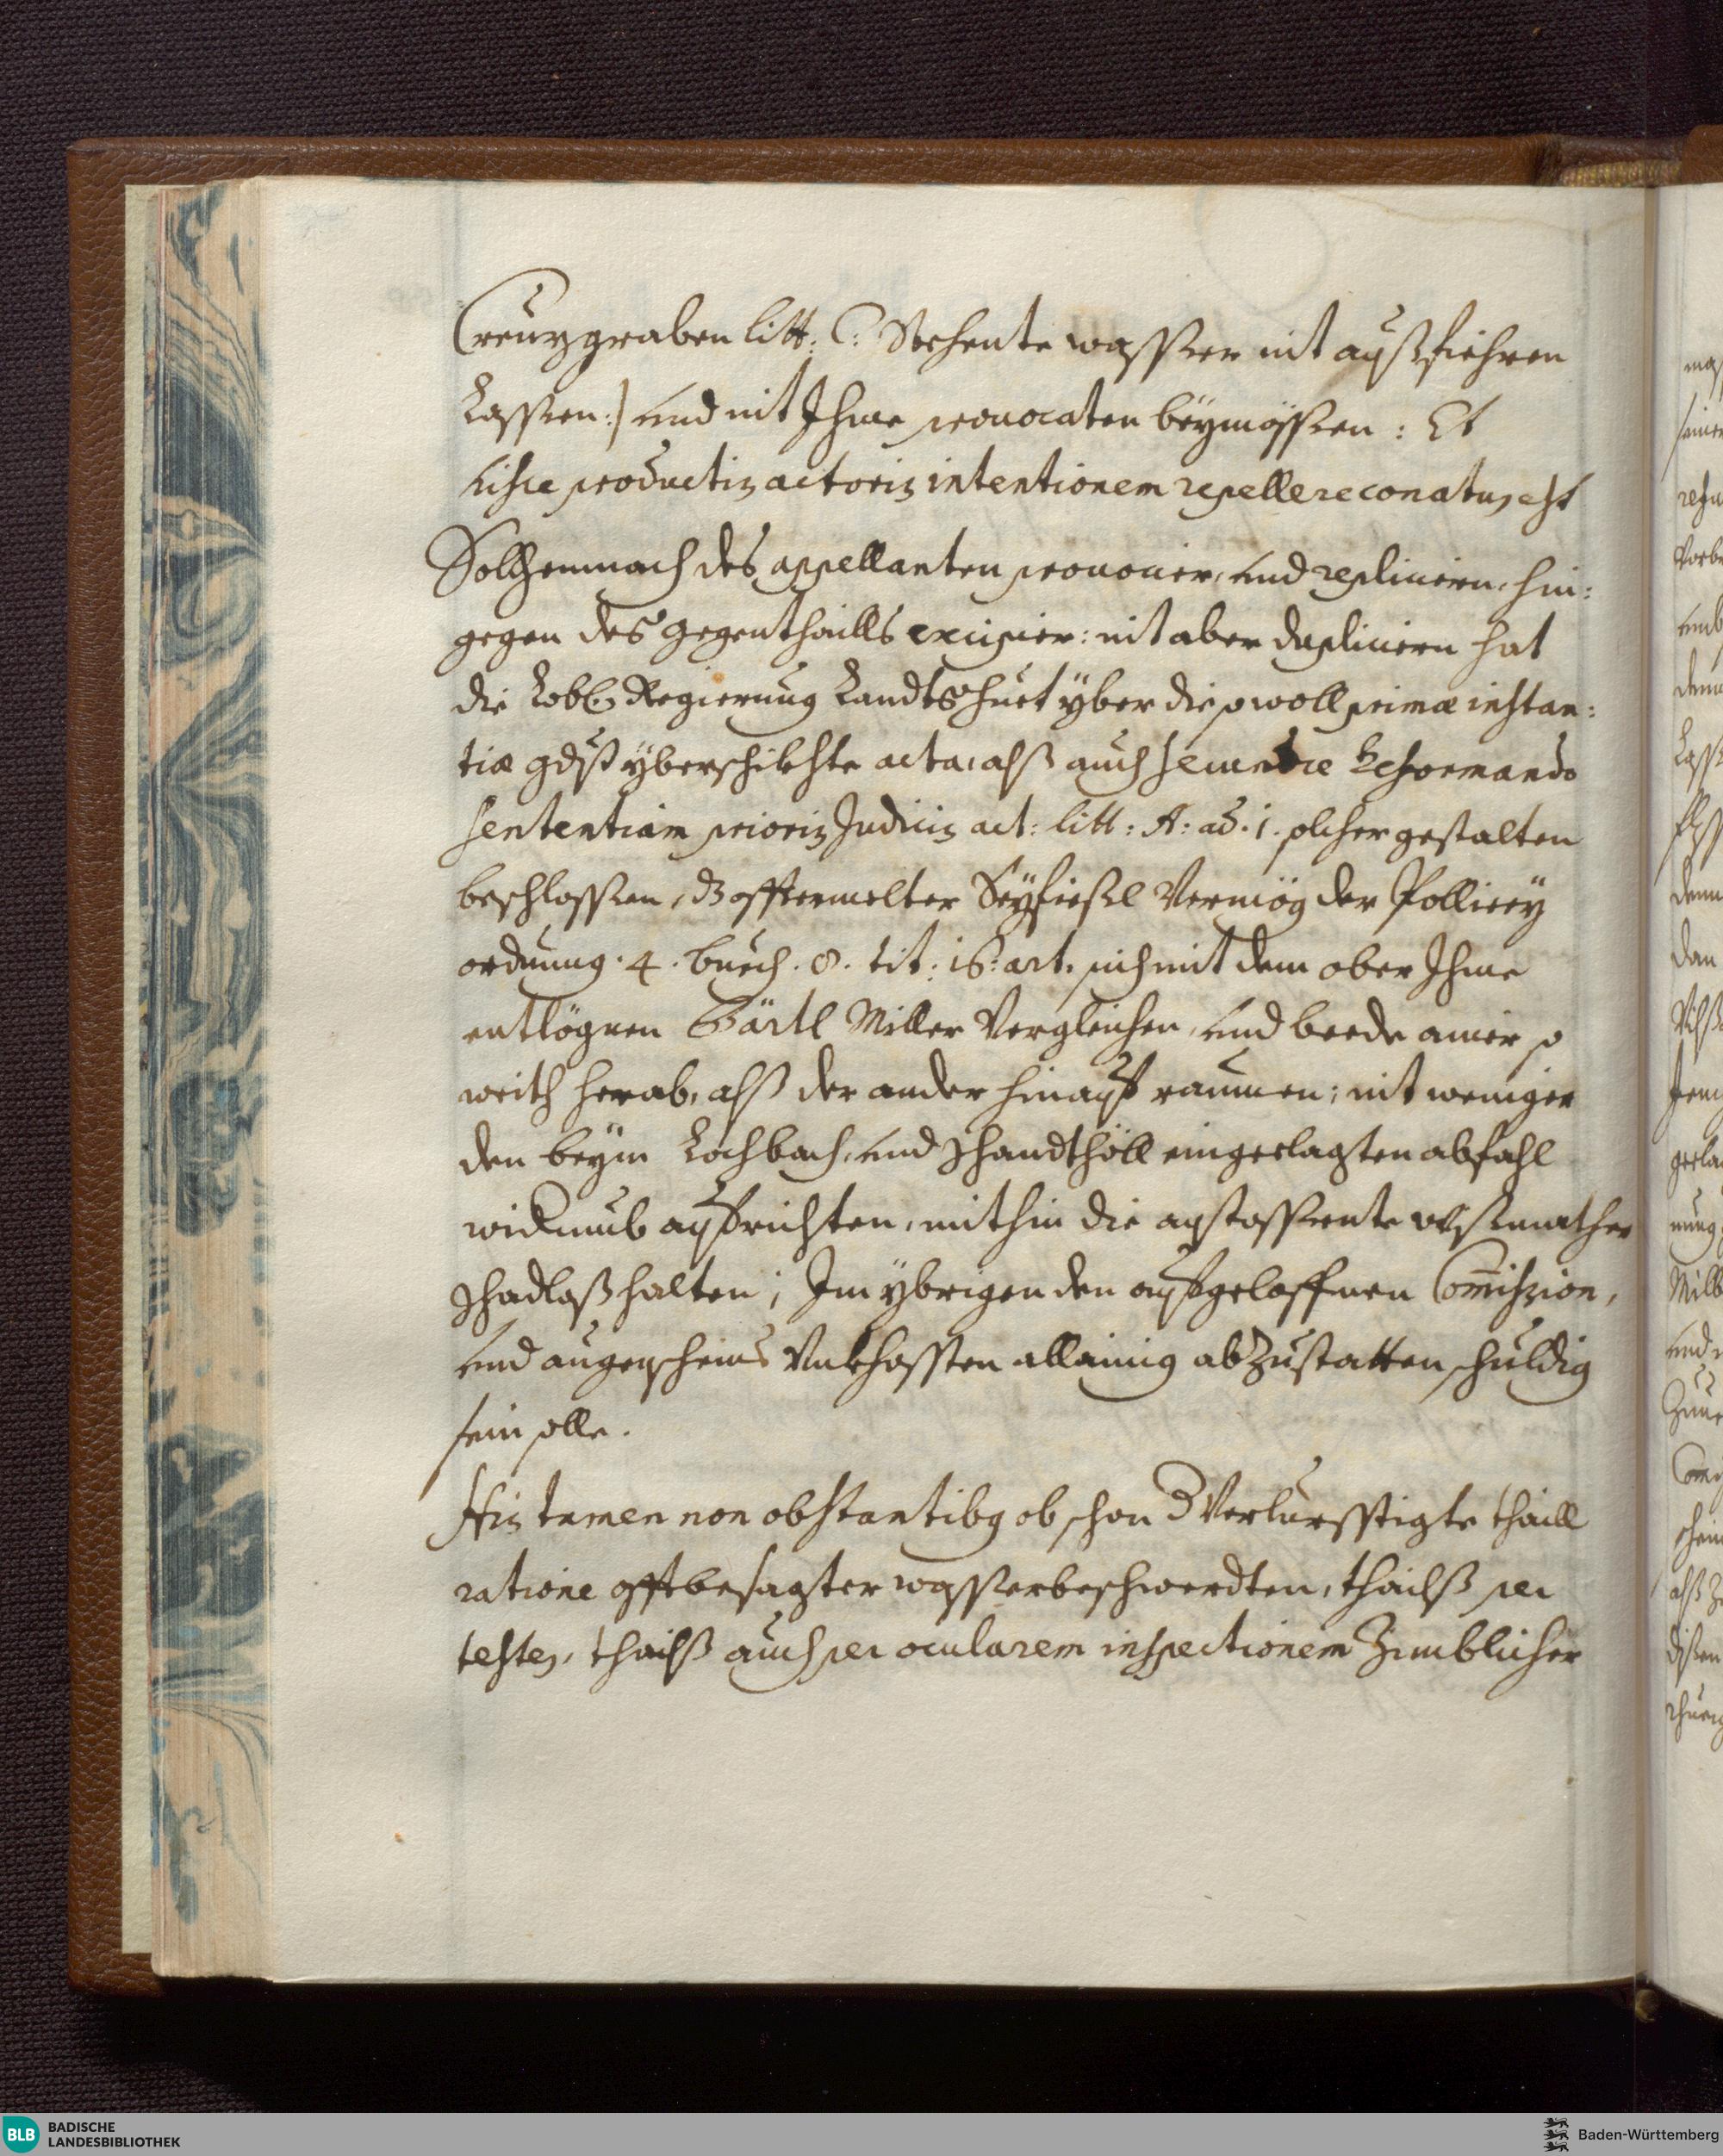 Creuzgraben litt: C: Stehente wasser nit außfiehren
Lassen:) und nit Ihme provocaten beymössen: Et
hisce productis actoris intentionem repellere conatus est
Solchemnach des appellanten provocier, und replicirn, hin:
gegen des gegenthaills excipier: nit aber duplicirn hat
die Lobl. Regierung Landtshuet yber die sowoll primæ instan:
tiæ gdist yberschikhte acta, alß auch secundæ Reformando
sententiam prioris Judicis act: litt: A: ad. 1. solcher gestalten
beschlossen, dz offtermelter Seyfießl Vermög der Pollicey
ordnung. 4. buech. 8. tit: 16: art. sich mit dem ober Ihme
entlögnen Bärtl Miller Vergleichen, und beede ainer so
weith herab, alß der ander hinauf raumen; nit weniger
den beym Lochbach, und Schandthöll eingeclagten abfahl
widerumb aufrichten, mithin die anstossente wissmather
schadloß halten; Im ybrigen den aufgeloffnen Commission,
und augenscheins Unkhossten allainig abzustatten schuldig
sein solle.
His tamen non obstantibus ob schon d Verlursstigte thaill
ratione offtbesagter wasserbeschwerdten, thailß per
testes, thailß auch per ocularem inspectionem Zimblicher
BLB BADISCHE
LANDESBIBLIOTHEK
Baden-Württemberg